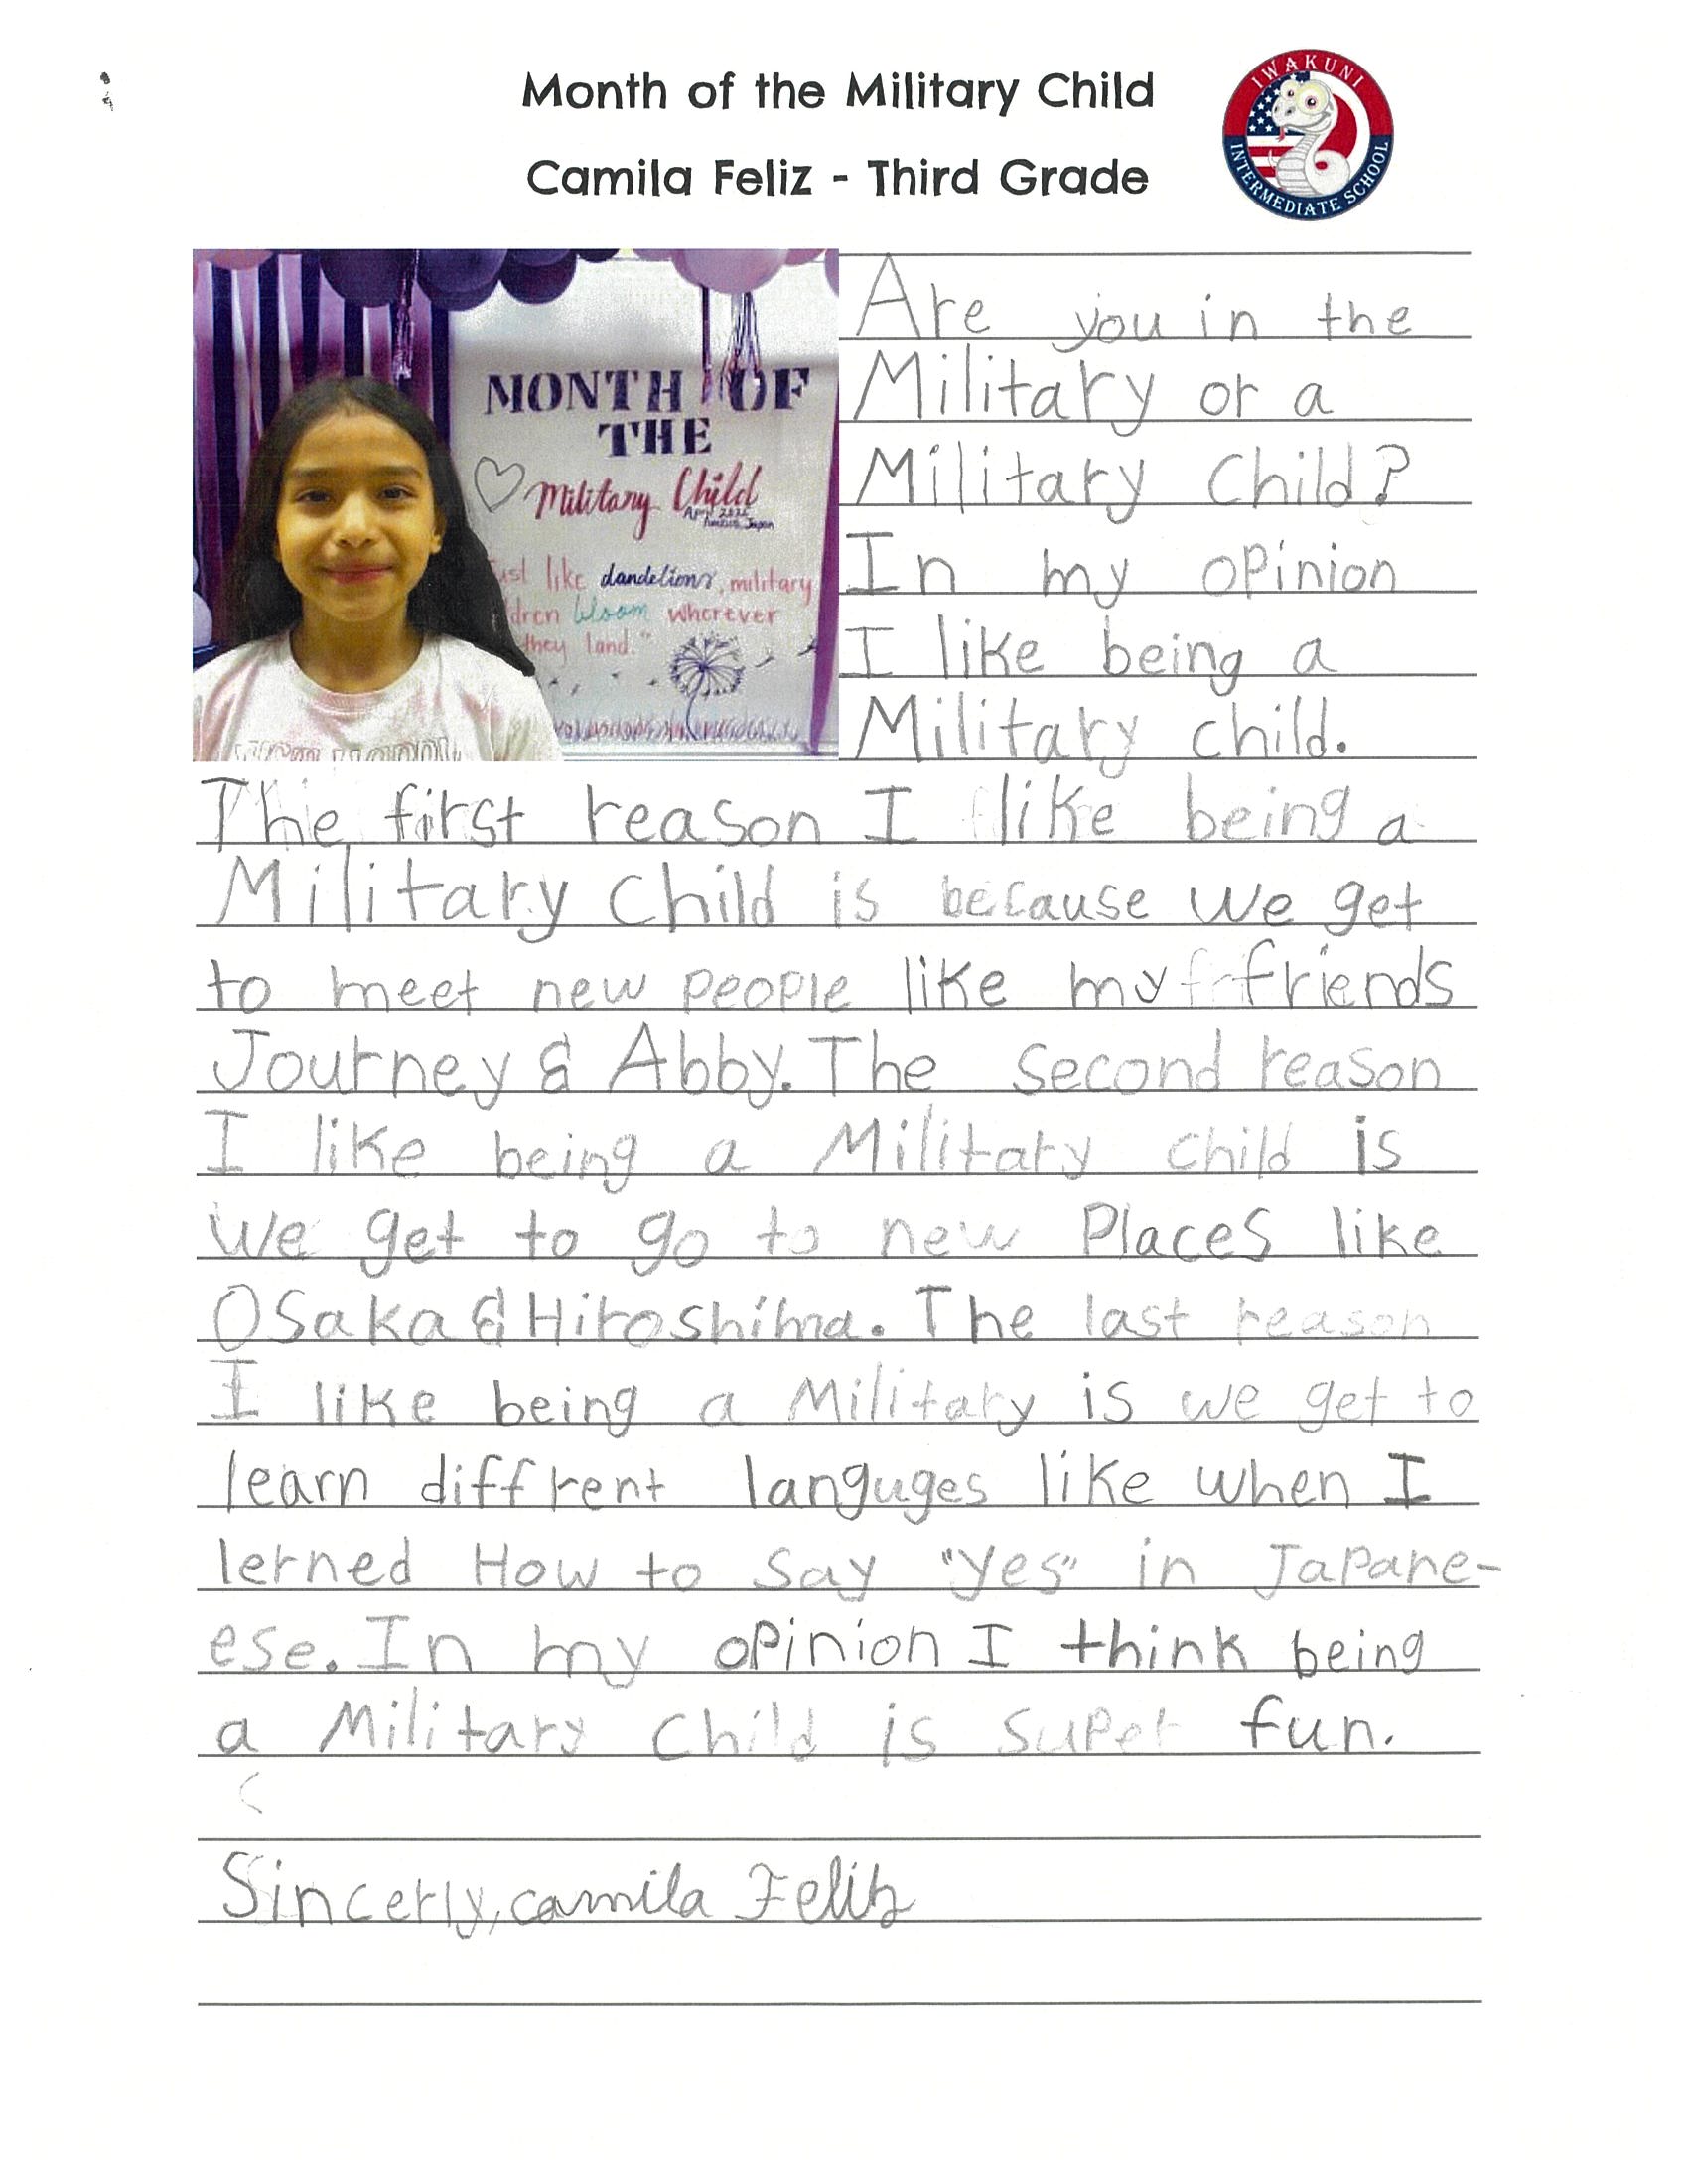 Month of the Military Child
Camila Feliz - Third Grade
IWAKUNI
INTERMEDIATE SCHOOL
MONTH OF
THE
Military Child
April
Japan
just like dandelions, military
dren bloom wherever
they land."
Are you in the
Military or a
Military Child?
In my opinion
I like being a
Military child.
The first reason I like being a
Military Child is because we get
to meet new people like my friends
Journey & Abby. The second reason
I like being a Military child is
we get to go to new Places like
Osaka & Hiroshima. The last reason
I like being a Military is we get to
learn diffrent languges like when I
lerned How to say "yes" in Japane-
ese. In my opinion I think being
a Military Child is super fun.
Sincerly, camila Feliz